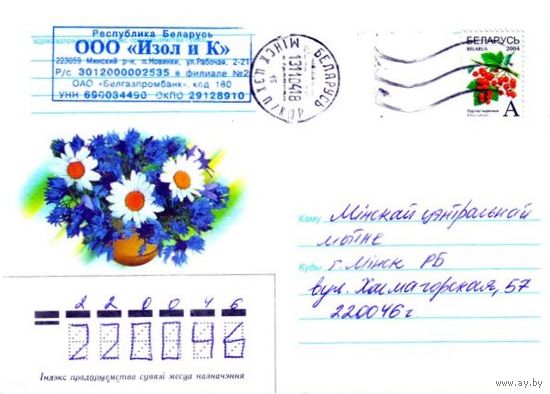 Республика Беларусь
ООО «Изол и К»
223059 Минский р-н, п.Новинки, ул.Рабочая, 2-21
Р/с 3012000002535 в филиале №2
ОАО «Белгазпромбанк», код 180
УНН 690034490 ОКПО 29128910
БЕЛАРУСЬ
МІНСК
131104 18
БЕЛАРУСЬ
BELARUS 2004
А
Каму Мінскай цэнтральнай
мытне
Куды г. Мінск РБ
вул. Холмагорская, 57
220046 г
220046
220046
Індэкс прадпрыемства сувязі месца назначэння
www.ay.by